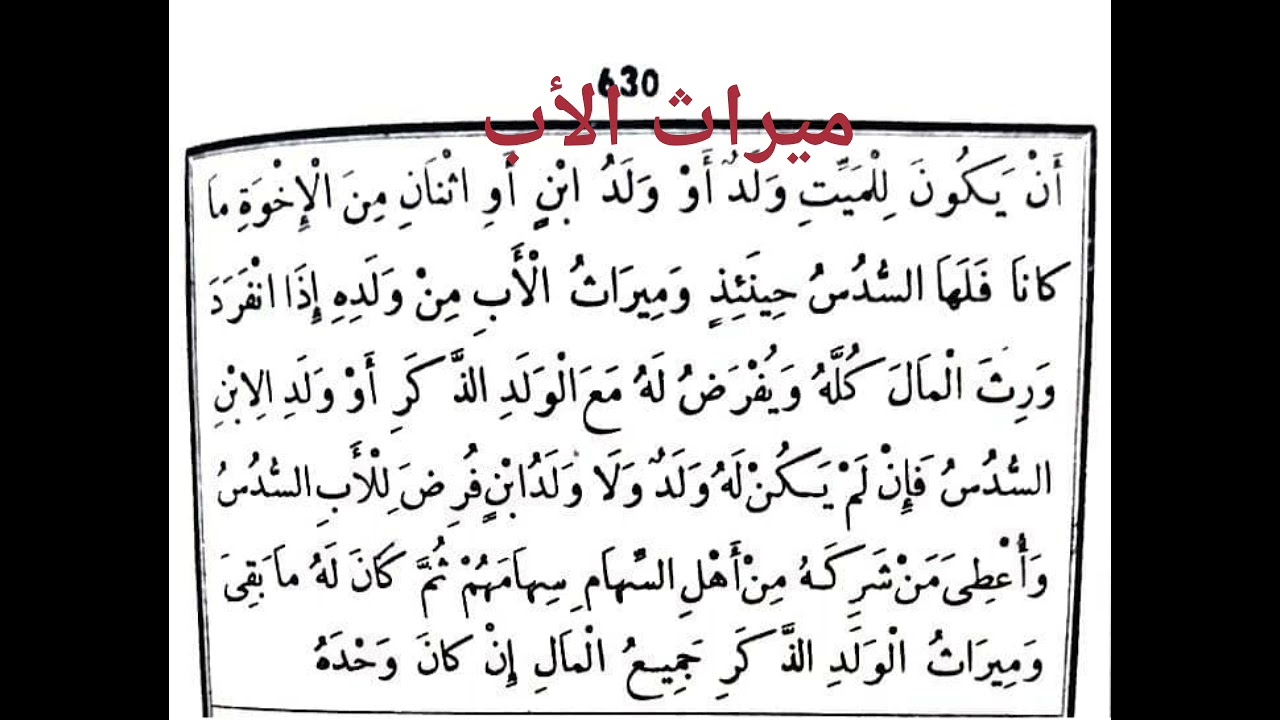 630
ميراث الأب
أَنْ يَكُونَ لِلْمَيِّتِ وَلَدٌ أَوْ وَلَدُ ابْنٍ أَوِ اثْنَانِ مِنَ الْإِخْوَةِ مَا
كانَا فَلَهَا السُّدُسُ حِينَئِذٍ وَمِيرَاثُ الْأَبِ مِنْ وَلَدِهِ إِذَا انْفَرَدَ
وَرِثَ الْمَالَ كُلَّهُ وَيُفْرَضُ لَهُ مَعَ الْوَلَدِ الذَّكَرِ أَوْ وَلَدِ الِابْنِ
السُّدُسُ فَإِنْ لَمْ يَكُنْ لَهُ وَلَدٌ وَلَا وَلَدُ ابْنٍ فُرِضَ لِلْأَبِ السُّدُسُ
وَأُعْطِىَ مَنْ شَرِكَهُ مِنْ أَهْلِ السِّهَامِ سِهامَهُمْ ثُمَّ كَانَ لَهُ مَا بَقِىَ
وَمِيرَاثُ الْوَلَدِ الذَّكَرِ جَمِيعُ الْمَالِ إِنْ كانَ وَحْدَهُ